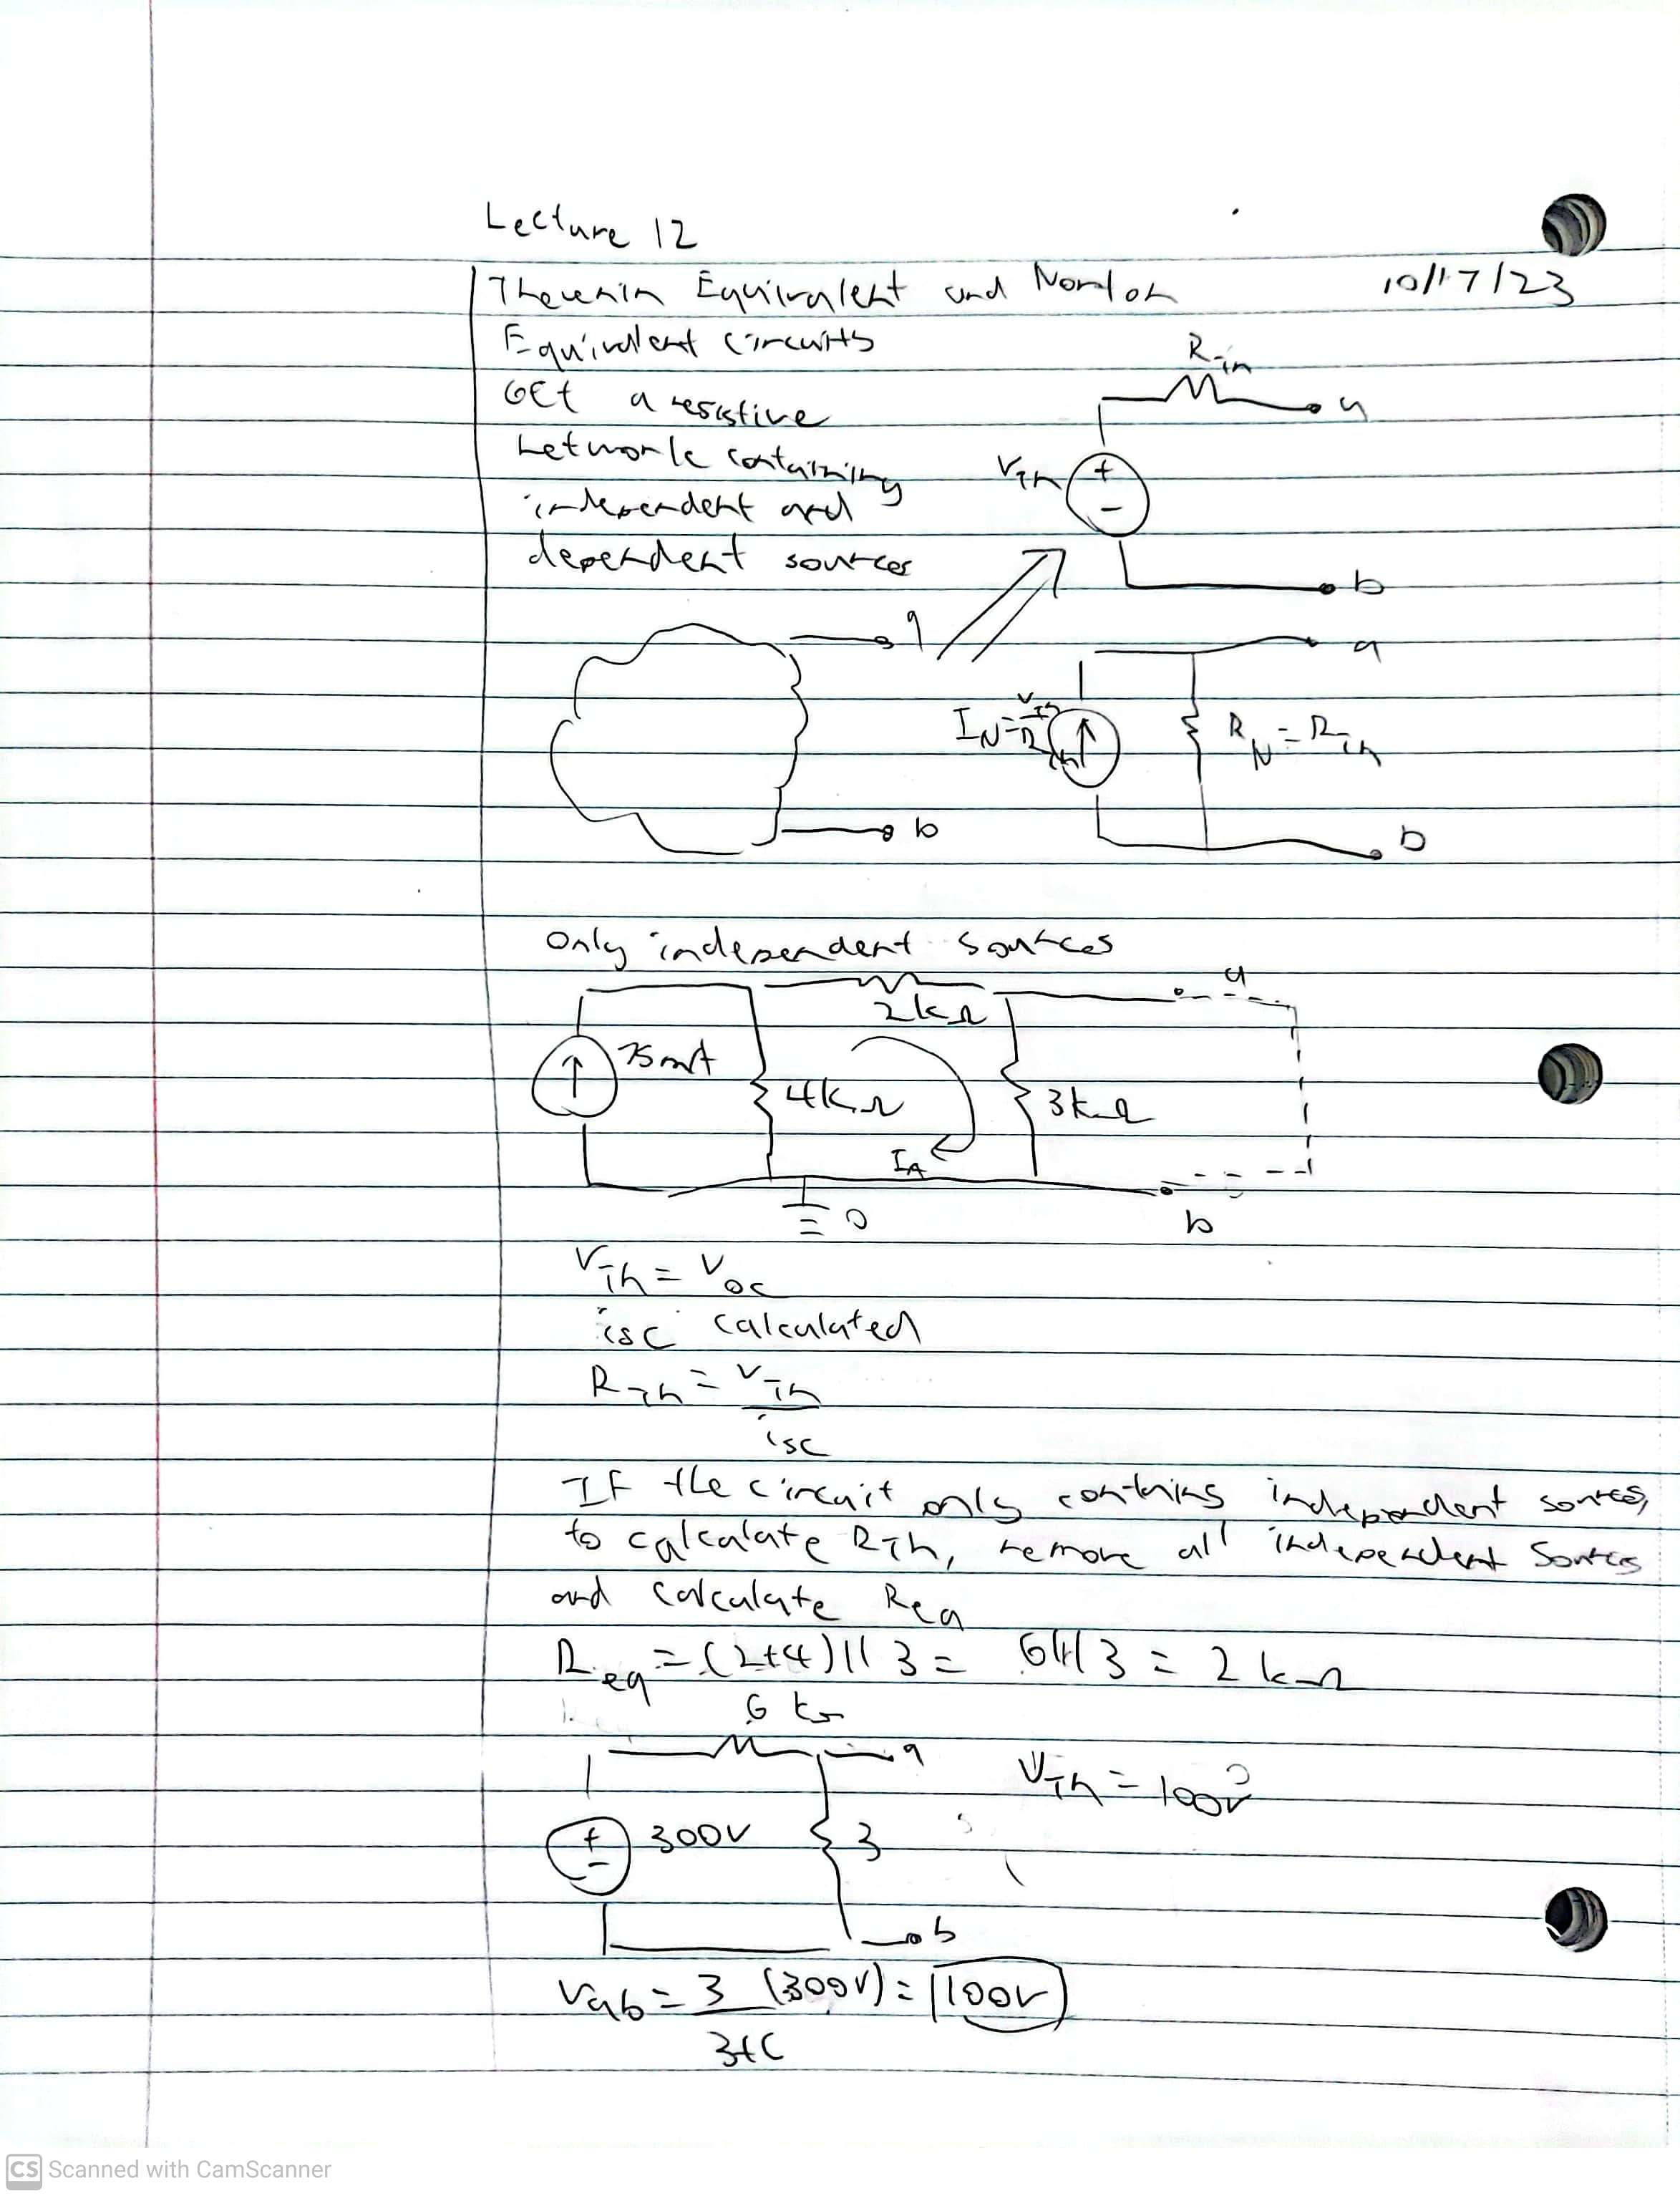 Lecture 12
Thevenin Equivalent and Norton 10/17/23
Equivalent circuits
Get a resistive
network containing
independent and
dependent sources
R_Th
a
V_Th
+
-
b
a
b
a
I_N = V_Th/R_Th
R_N = R_Th
b
Only independent sources
a
2kΩ
75mA
4kΩ
3kΩ
I_A
0
b
V_Th = V_oc
i_sc calculated
R_Th = V_Th
i_sc
If the circuit only contains independent sources,
to calculate R_Th, remove all independent sources
and calculate Req
R_eq = (2+4)||3 = 6||3 = 2kΩ
6 kΩ
a
V_Th = 100V
+
-
300V
3
b
V_ab = 3 (300V) = 100V
3+6
CS Scanned with CamScanner